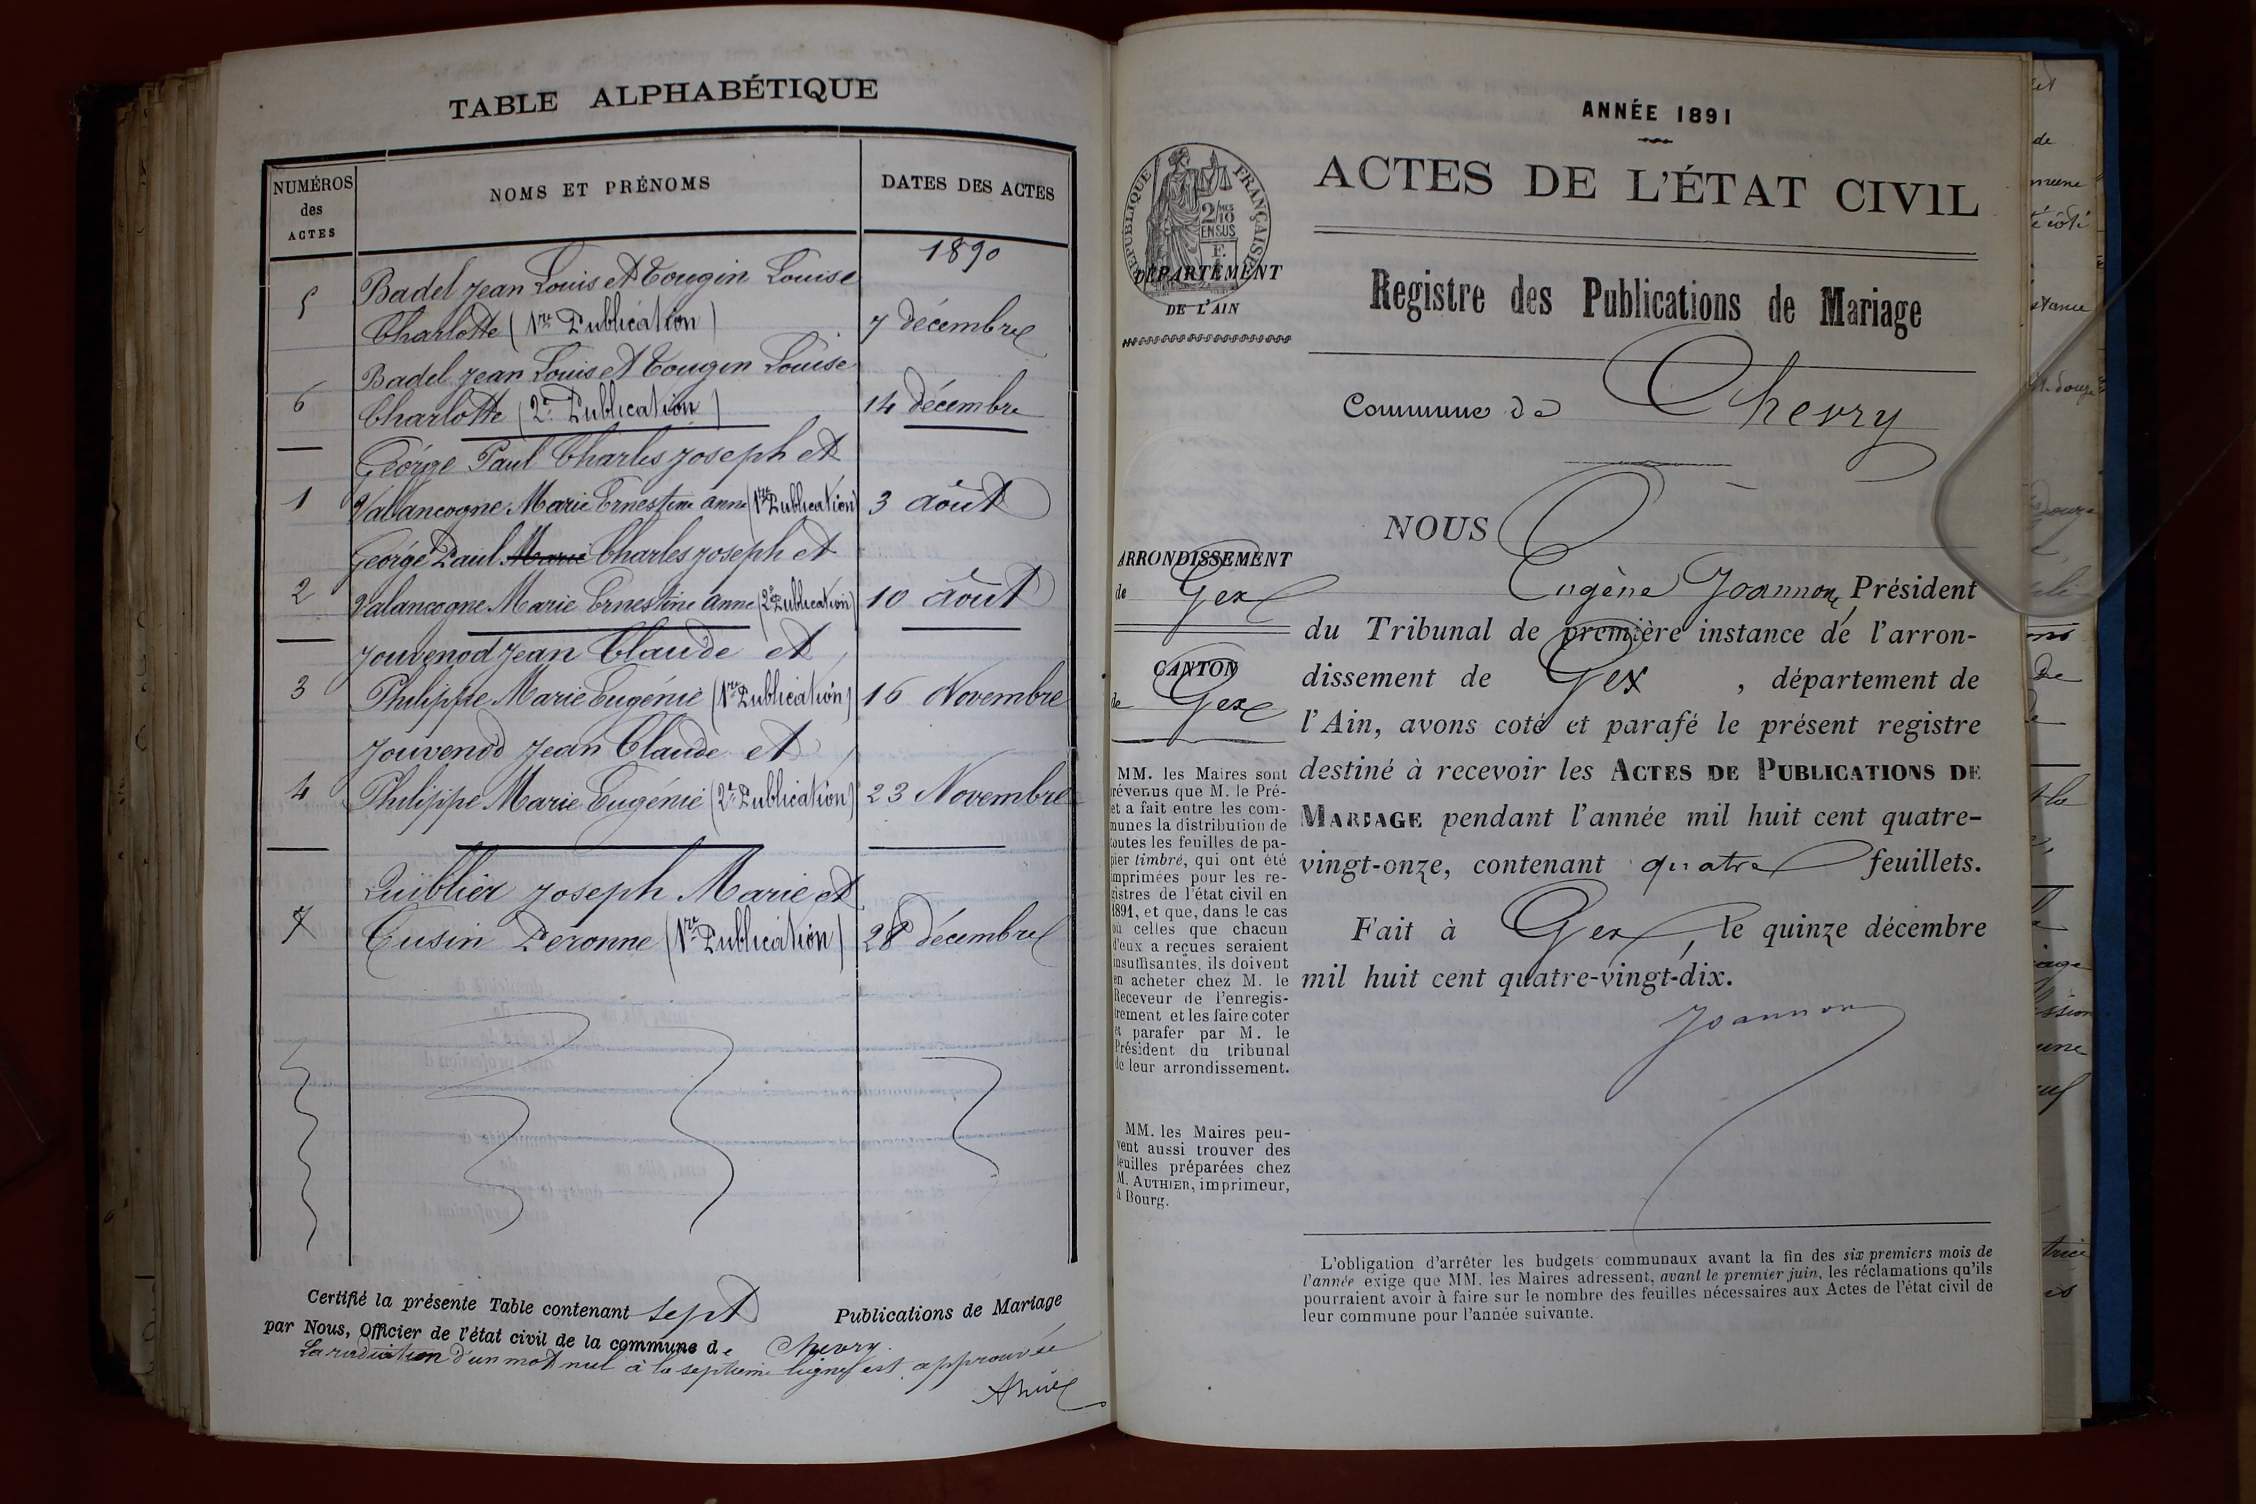 TABLE ALPHABÉTIQUE
NUMÉROS
des
ACTES
NOMS ET PRÉNOMS
DATES DES ACTES
1890
Badel Jean Louis et Tougin Louise
5 Charlotte (1re Publication) 7 décembre
Badel Jean Louis et Tougin Louise
6 Charlotte (2e Publication) 14 décembre
George Paul Charles Joseph et
1 Valancogne Marie Ernestine Anne (1re Publication) 3 Août
George Paul Marie Charles Joseph et
2 Valancogne Marie Ernestine Anne (2e Publication) 10 Août
Jouvenod Jean Claude et
3 Philippe Marie Eugénie (1re Publication) 16 Novembre
Jouvenod Jean Claude et
4 Philippe Marie Eugénie (2e Publication) 23 Novembre
Quiblier Joseph Marie et
7 Cusin Peronne (1re Publication) 28 décembre
Certifié la présente Table contenant sept Publications de Mariage
par Nous, Officier de l'état civil de la commune de Chevry.
La radiation d'un mot nul à la septième ligne est approuvée
ANNÉE 1891
ACTES DE L'ÉTAT CIVIL
RÉPUBLIQUE FRANÇAISE
2/10MES
EN SUS
DÉPARTEMENT
DE L'AIN
Registre des Publications de Mariage
Commune de Chevry
ARRONDISSEMENT
de Gex
CANTON
de Gex
MM. les Maires sont
prévenus que M. le Pré-
fet a fait entre les com-
munes la distribution de
toutes les feuilles de pa-
pier timbré, qui ont été
imprimées pour les re-
gistres de l'état civil en
1891, et que, dans le cas
où celles que chacun
d'eux a reçues seraient
insuffisantes, ils doivent
en acheter chez M. le
Receveur de l'enregis-
trement et les faire coter
et parafer par M. le
Président du tribunal
de leur arrondissement.
MM. les Maires peu-
vent aussi trouver des
feuilles préparées chez
M. AUTHIER, imprimeur,
à Bourg.
NOUS
Eugène Joannon, Président
du Tribunal de première instance de l'arron-
dissement de Gex, département de
l'Ain, avons coté et parafé le présent registre
destiné à recevoir les ACTES DE PUBLICATIONS DE
MARIAGE pendant l'année mil huit cent quatre-
vingt-onze, contenant quatre feuillets.
Fait à Gex, le quinze décembre
mil huit cent quatre-vingt-dix.
Joannon
L'obligation d'arrêter les budgets communaux avant la fin des six premiers mois de
l'année exige que MM. les Maires adressent, avant le premier juin, les réclamations qu'ils
pourraient avoir à faire sur le nombre des feuilles nécessaires aux Actes de l'état civil de
leur commune pour l'année suivante.